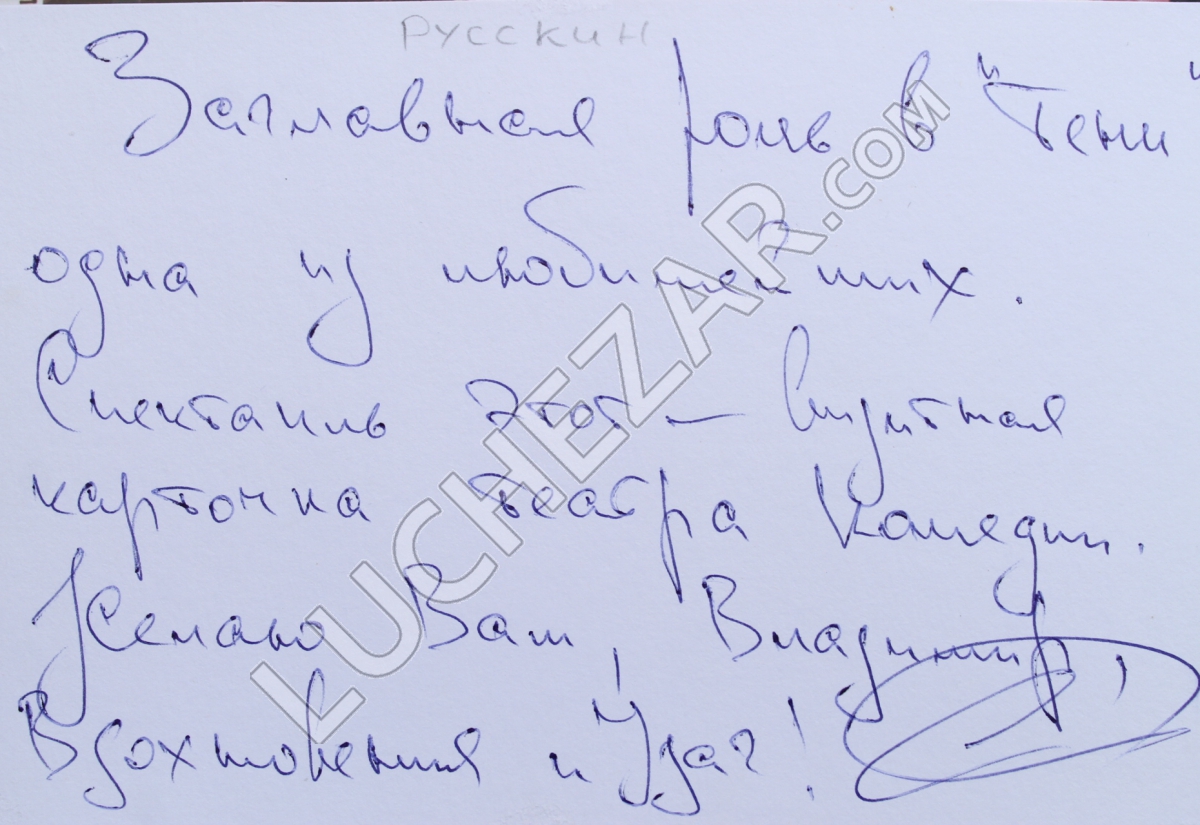 РУССКИН
Заглавная роль в "Тени"
одна из любимейших.
Спектакль этот — визитная
карточка театра Комедии.
Желаю Вам, Владимир,
Вдохновения и Удач!
LUCHEZAR.com